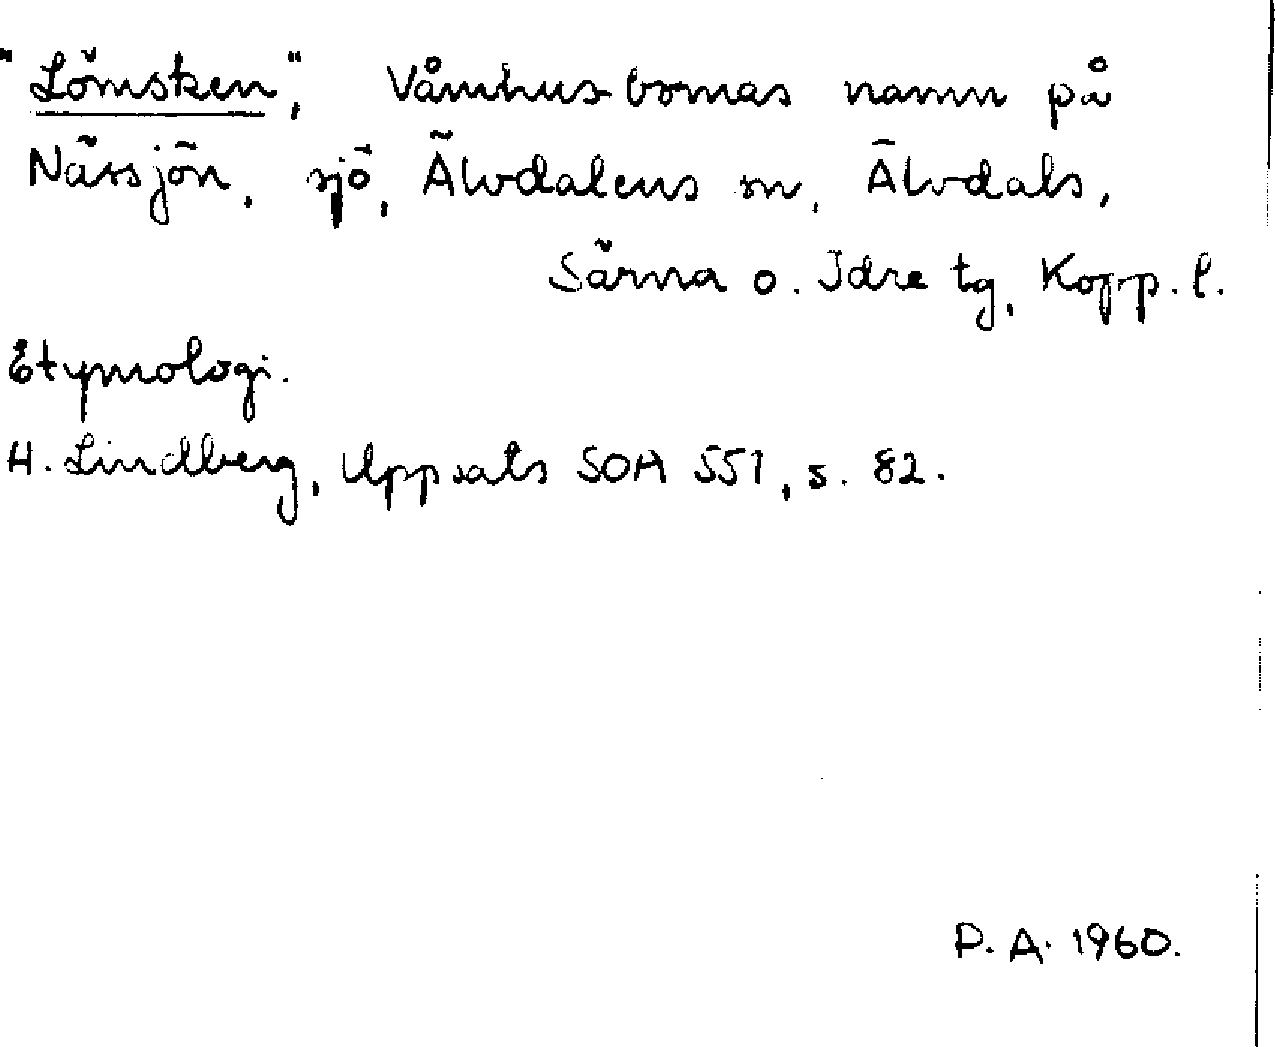 "Lömsken", Våmhusbornas namn på
Närsjön, sjö, Älvdalens sn, Älvdals,
Särna o. Idre tg, Kopp. l.
Etymologi.
H. Lindberg, Uppsats SOA 551, s. 82.
P. A. 1960.